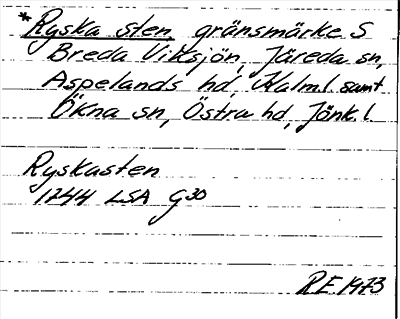 *Ryska sten, gränsmärke S
Breda Viksjön, Järeda sn,
Aspelands hd, Kalm.l. samt
Ökna sn, Östra hd, Jönk.l.
Ryskasten
1744 LSA G30
R.E. 1973